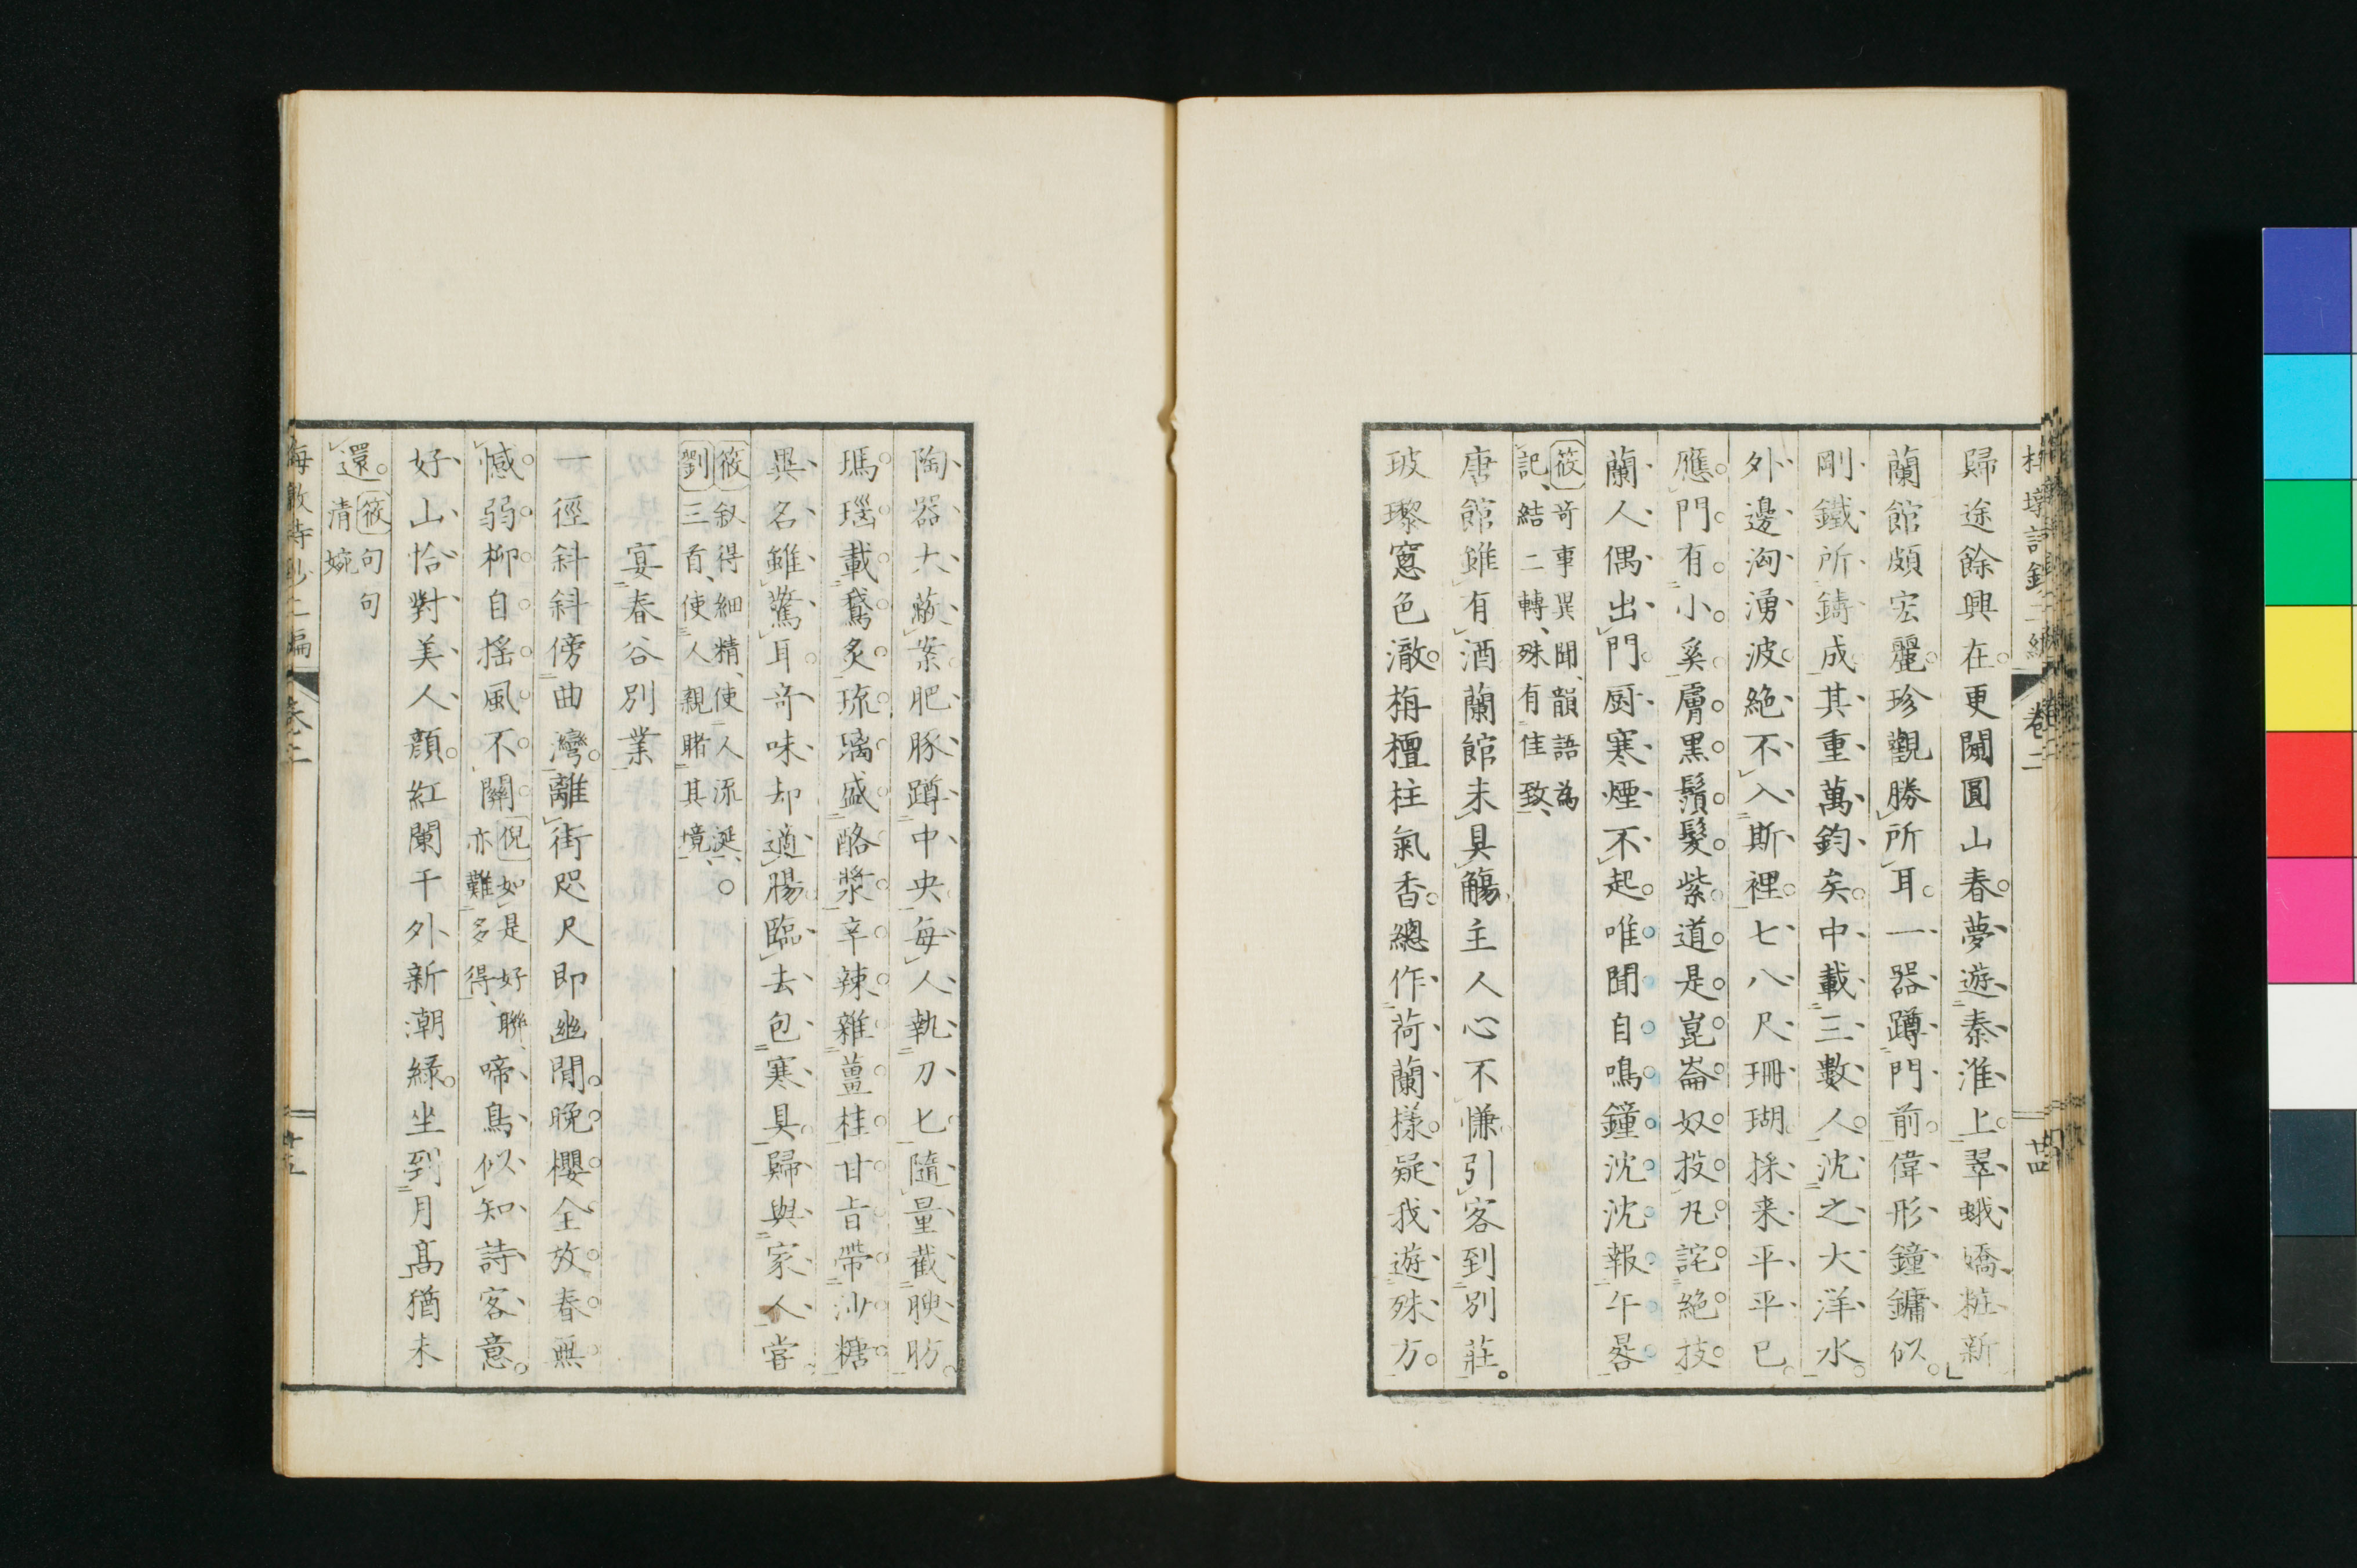 歸途餘興在更闌圓山春夢遊秦淮上翠蛾嬌粧新
蘭館頗宏麗珍觀勝所耳一器蹲門前偉形鐘鏞似
剛鐵所鑄成其重萬鈞矣中載三數人沈之大洋水
外邊洶湧波絶不入斯裡七八尺珊瑚採来平平已
應門有小奚膚黒鬚髮紫道是崑崙奴投丸詫絶技
蘭人偶出門厨寒煙不起唯聞自鳴鐘沈沈報午晷
筱奇事異聞韻語為
記結二轉殊有佳致
唐館雖有酒蘭館未具觴主人心不慊引客到別莊
玻瓈窓色澈栴檀柱氣香總作荷蘭様疑我遊殊方
卷二
廿四
陶器大蔽案肥豚蹲中央毎人執刀匕隨量截腴肪
瑪瑙載鵞炙琉璃盛酪漿辛辣雜薑桂甘旨帶沙糖
異名雖驚耳奇味却適腸臨去包寒具歸與家人嘗
筱叙得細精使人流涎○
劉三首使人親睹其境
宴春谷別業
一徑斜斜傍曲灣離街咫尺即幽閒晩櫻全放春無
憾弱柳自揺風不關倪如是好聯亦難多得啼鳥似知詩客意
好山恰對美人顔紅闌干外新潮緑坐到月髙猶未
還筱句句清婉
卷二
廿五